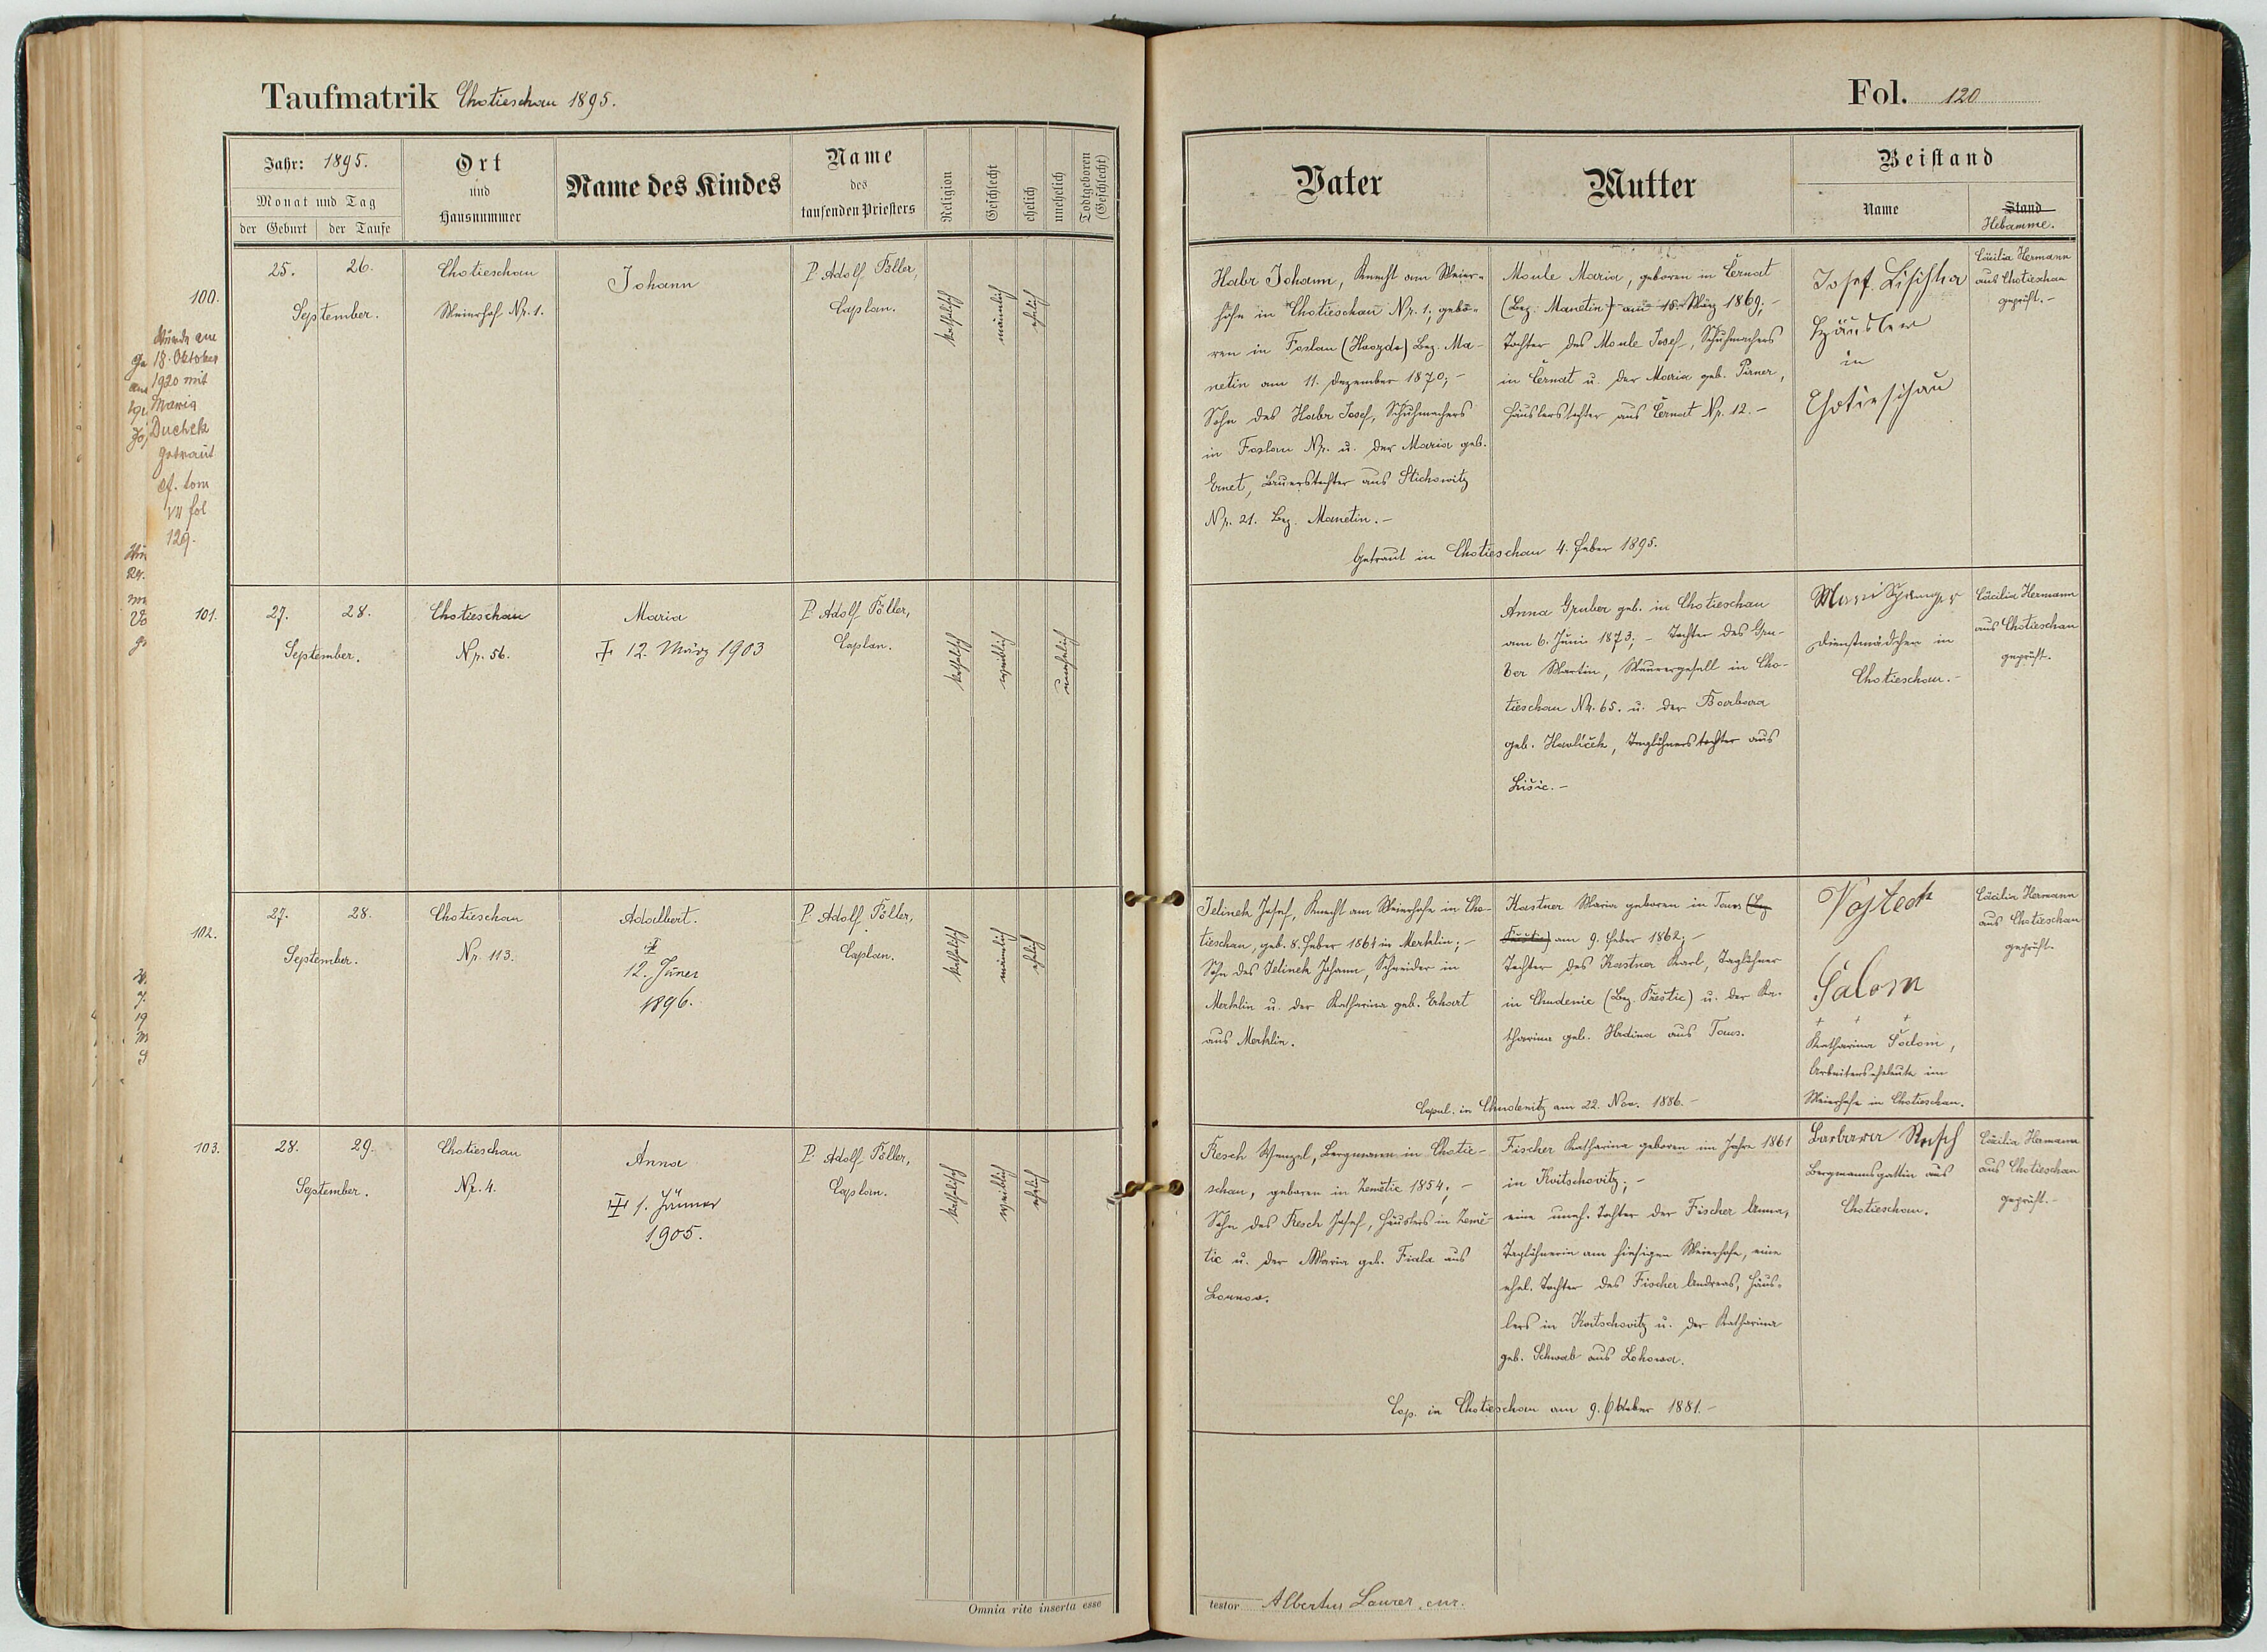 Taufmatrik Chotieschau 1895.
Jahr: 1895.
Monat und Tag
der Geburt
der Taufe
Ort
und
Hausnummer
Name des Kindes
Name
des
taufenden Priesters
Religion
Geschlecht
ehelich
unehelich
Todtgeboren
(Geschlecht)
100.
25.
26.
September.
Chotieschau
Meierhof Nr. 1.
Johann
P. Adolf Töller,
Caplan.
katholisch
männlich
ehelich
Wurde am
18. Oktober
1920 mit
Maria
Duchek
getraut
cf. tom
VII fol
129.
101.
27.
28.
September.
Chotieschau
Nr. 56.
Maria
12. März 1903
P. Adolf Töller,
Caplan.
katholisch
weiblich
unehelich
102.
27.
28.
September.
Chotieschau
Nr. 113.
Adalbert.
12. Jäner
1896.
P. Adolf Töller,
Caplan.
katholisch
männlich
ehelich
103.
28.
29.
September.
Chotieschau
Nr. 4.
Anna
1. Jänner
1905.
P. Adolf Töller,
Caplan.
katholisch
weiblich
ehelich
Omnia rite inserta esse
Fol. 120
Vater
Mutter
Beistand
Name
Stand
Hebamme.
Habr Johann, Knecht am Meier-
hofe in Chotieschau Nr. 1, gebo-
ren in Foslau (Hvozdo) Bez. Ma-
netin am 11. Dezember 1870; -
Sohn des Habr Josef, Schuhmachers
in Foslau Nr. u. der Maria geb.
Ernet, Bauerstochter aus Stichowitz
Nr. 21. Bez. Manetin. -
Moule Maria, geboren in Černat
(Bez: Manetin) am 18. März 1869; -
Tochter des Moule Josef, Schuhmachers
in Černat u. der Maria geb. Pirner,
Häuslerstochter aus Černat Nr. 12. -
Getraut in Chotieschau 4. Feber 1895.
Josef Lischka
Häusler
in
Chotieschau
Cäcilia Hermann
aus Chotieschau
geprüft. -
Anna Gruber geb. in Chotieschau
am 6. Juni 1873; - Tochter des Gru-
ber Martin, Maurergesell in Cho-
tieschau Nr. 65. u. der Barbara
geb. Havlíček, Taglöhnerstochter aus
Lišic. -
Dienstmädchen in
Chotieschau. -
Cäcilia Hermann
aus Chotieschau
geprüft.
Jelinek Josef, Knecht am Meierhofe in Cho-
tieschau, geb. 8. Feber 1864 in Merklin; -
Sohn des Jelinek Johann, Schneider in
Merklin u. der Katharina geb. Erhart
aus Merklin.
Kastner Maria geboren in Taus (Bez
Přestic) am 9. Feber 1862; -
Tochter des Kastner Karl, Taglöhner
in Chudenic (Bez. Přestic) u. der Ka-
tharina geb. Hrdina aus Taus.
Copul. in Chudenitz am 22. Nov. 1886. -
Vojtech
Šalom
+ + +
Katharina Šalom,
Arbeiterseheleute im
Meierhofe in Chotieschau.
Cäcilia Hermann
aus Chotieschau
geprüft.
Resch Wenzel, Bergmann in Chotie-
schau, geboren in Zemětic 1854; -
Sohn des Resch Josef, Häuslers in Země-
tic u. der Maria geb. Fiala aus
Fischer Katharina geboren im Jahre 1861
in Kvitschovitz; -
eine uneh. Tochter der Fischer Anna,
Taglöhnerin am hiesigen Meierhofe, eine
ehel. Tochter des Fischer Andreas, Häus-
lers in Kvitschovitz u. der Katharina
geb. Schwab aus Lohowa.
Cop. in Chotieschau am 9. Oktober 1881. -
Barbara Resch
Bergmannsgattin aus
Chotieschau.
Cäcilia Hermann
aus Chotieschau
geprüft. -
testor Albertus Laurer, cur.